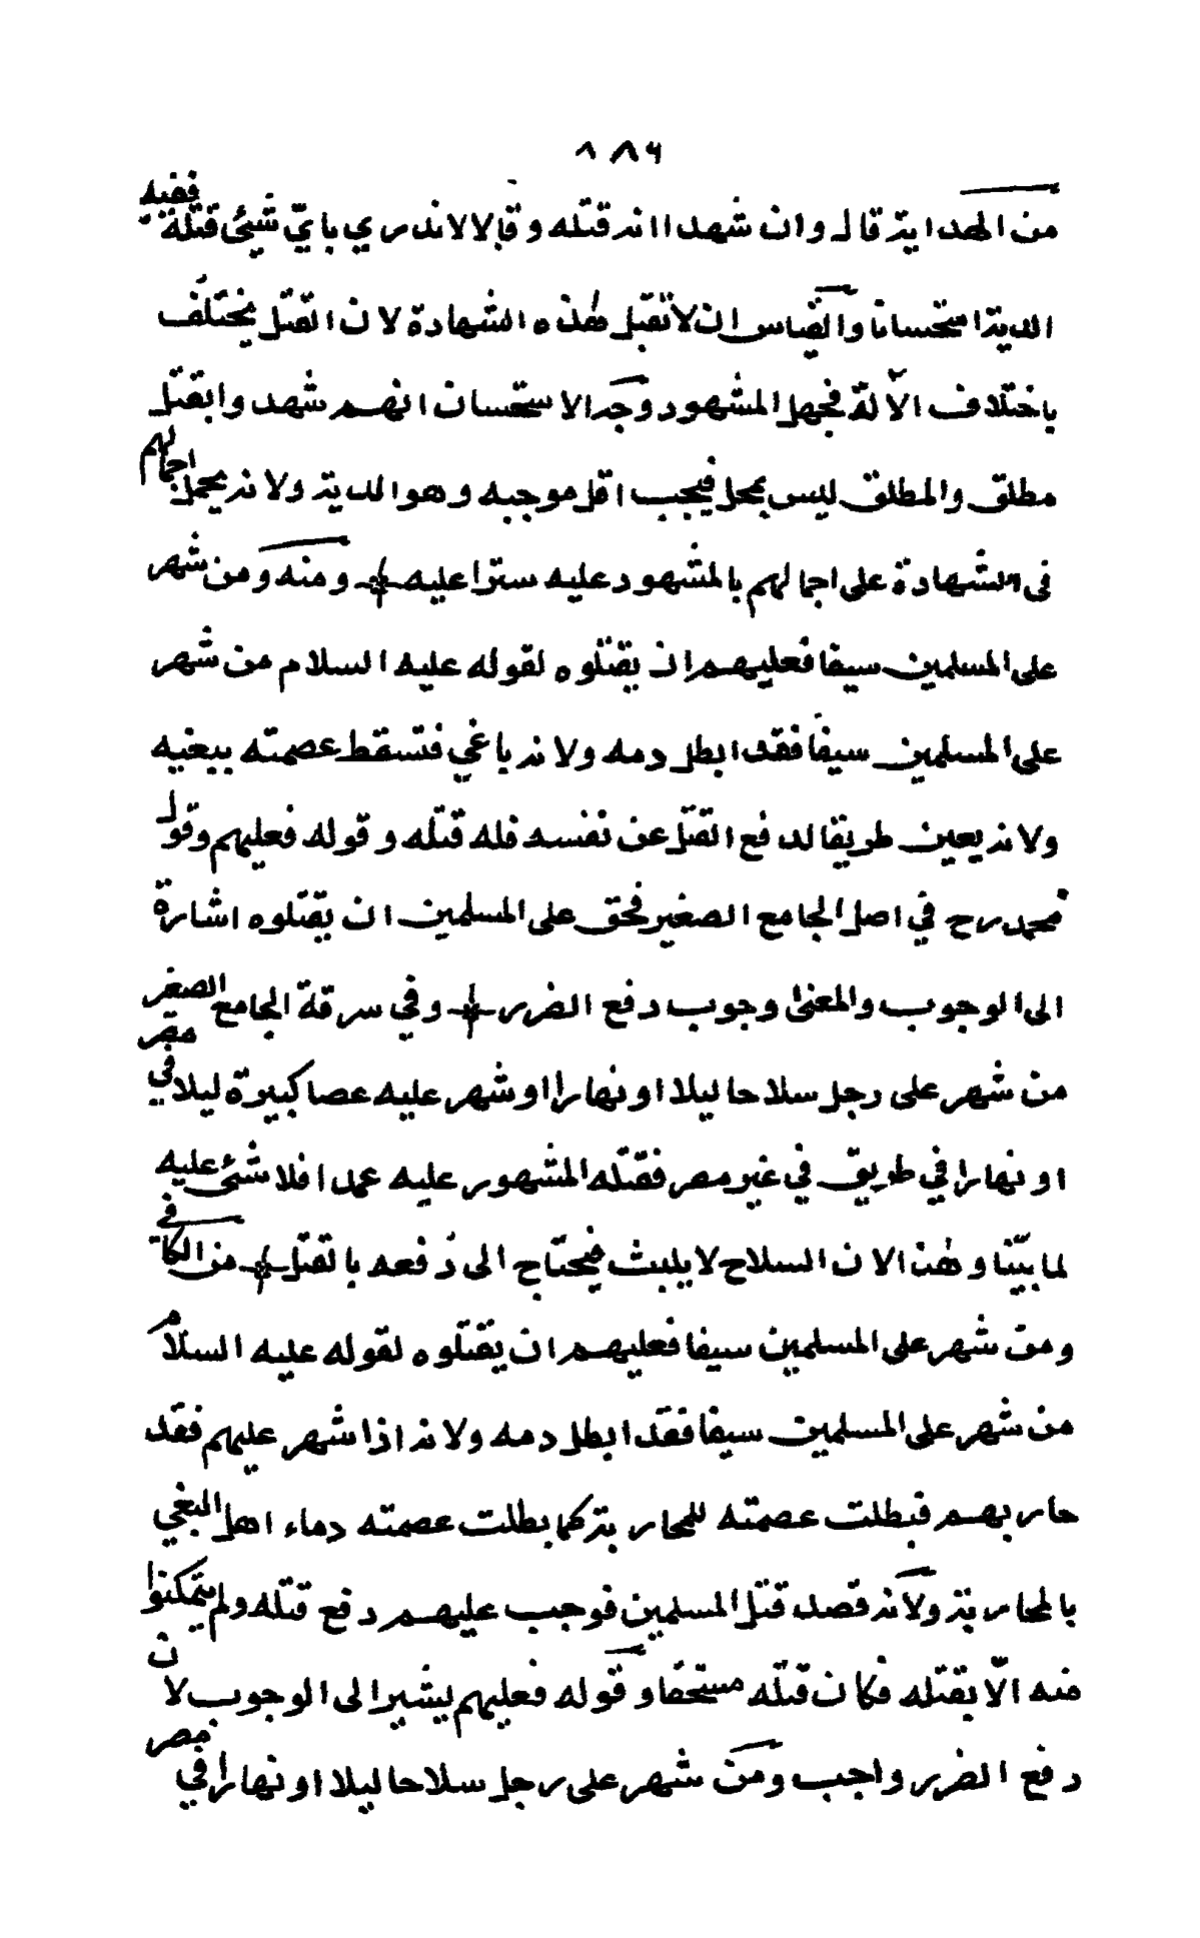 ٨٨٦
من الهداية قال وان شهدا انه قتله وقالا لا ندري باي شيئ قتله ففيه
الدية استحسانا والقياس ان لا تقبل هذه الشهادة لان القتل يختلف
باختلاف الآلة فجهل المشهود وجه الاستحسان انهم شهدوا بقتل
مطلق والمطلق ليس بمجمل فيجب اقل موجبه وهو الدية ولانه يحمل اجمالهم
في الشهادة على اجمالهم بالمشهود عليه سترا عليه ومنه ومن شهر
على المسلمين سيفا فعليهم ان يقتلوه لقوله عليه السلام من شهر
على المسلمين سيفا فقد ابطل دمه ولانه باغي فتسقط عصمته ببغيه
ولانه يعين طريقا لدفع القتل عن نفسه فله قتله وقوله فعليهم وقول
محمد رح في اصل الجامع الصغير فحق على المسلمين ان يقتلوه اشارة
الى الوجوب والمعنى وجوب دفع الضرر وفي سرقة الجامع الصغير
من شهر على رجل سلاحا ليلا او نهارا او شهر عليه عصا كبيرة ليلا في مصر
او نهارا في طريق في غير مصر فقتله المشهور عليه عمدا فلا شئ عليه
لما بيّنا وهذا لان السلاح لا يلبث فيحتاج الى دفعه بالقتل من الكافي
ومن شهر على المسلمين سيفا فعليهم ان يقتلوه لقوله عليه السلام
من شهر على المسلمين سيفا فقد ابطل دمه ولانه اذا شهر عليهم فقد
حاربهم فبطلت عصمته للمحاربة كما بطلت عصمته دماء اهل البغي
بالمحاربة ولانه قصد قتل المسلمين فوجب عليهم دفع قتله ولم يتمكنوا
منه الّا بقتله فكان قتله مستحقا وقوله فعليهم يشير الى الوجوب لان
دفع الضرر واجب ومن شهر على رجل سلاحا ليلا او نهارا في مصر